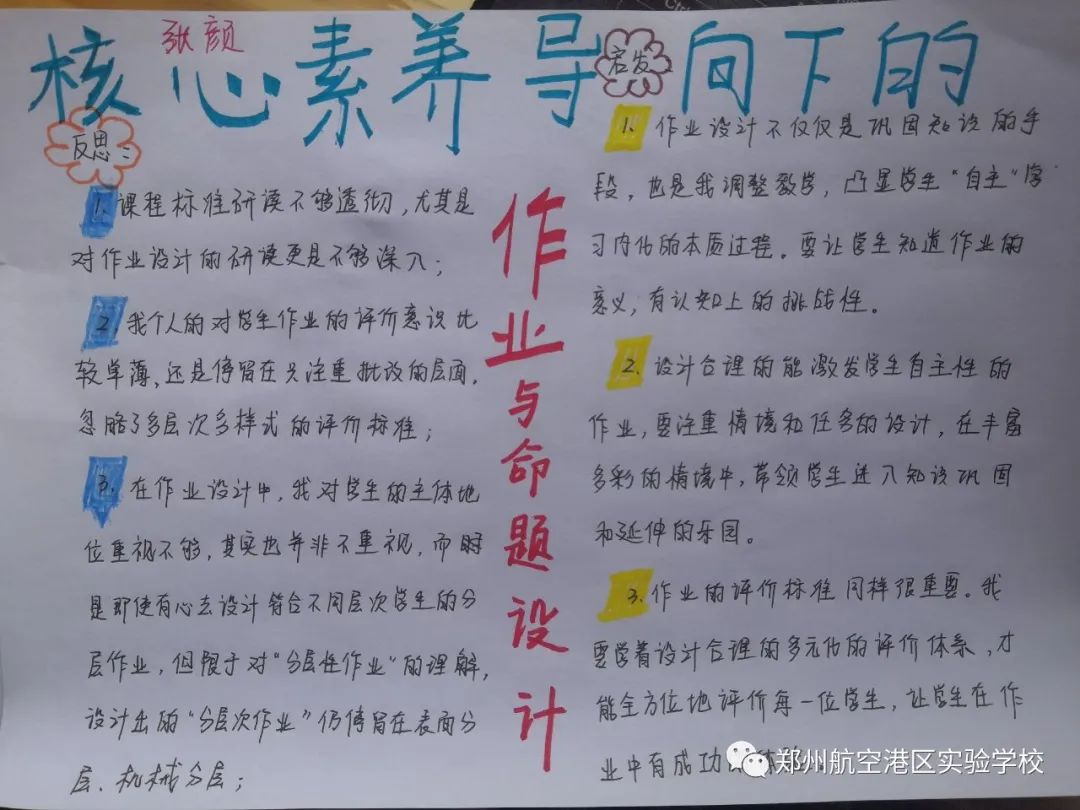 张颜
核心素养导向下的
作业与命题设计
反思:
1. 课程标准研读不够透彻,尤其是
对作业设计的研读更是不够深入;
2. 我个人的对学生作业的评价意识比
较单薄、还是停留在只注重批改的层面,
忽略了多层次多样式的评价标准;
3. 在作业设计中,我对学生的主体地
位重视不够,其实也并非不重视,而
是即使有心去设计符合不同层次学生的分
层作业,但限于对“分层性作业”的理解,
设计出的“分层次作业”仍停留在表面分
层、机械分层;
启发
1. 作业设计不仅仅是巩固知识的手
段,也是我调整教学,凸显学生“自主”学
习内化的本质过程。要让学生知道作业的
意义,有认知上的挑战性。
2. 设计合理的能激发学生自主性的
作业,要注重情境和任务的设计,在丰富
多彩的情境中,带领学生进入知识巩固
和延伸的乐园。
3. 作业的评价标准同样很重要。我
要学着设计合理的多元化的评价体系,才
能全方位地评价每一位学生,让学生在作
业中有成功
郑州航空港区实验学校